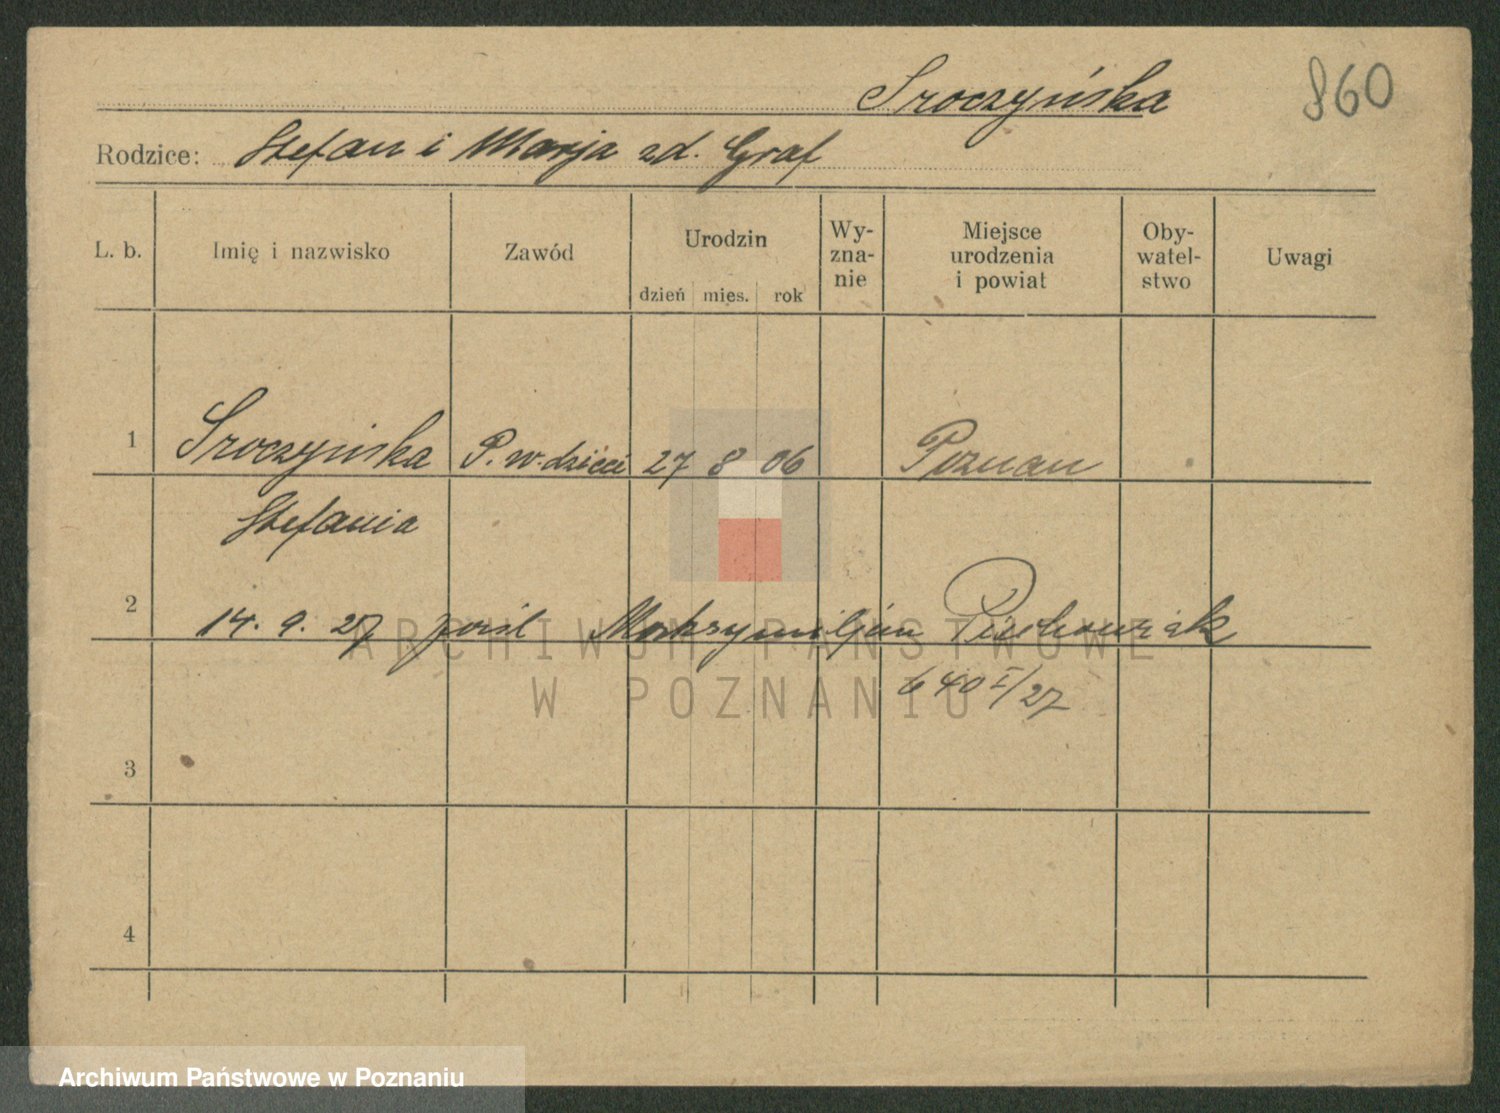 Sroczyńska 860
Rodzice: Stefan i Marja zd. Graf
L. b. Imię i nazwisko Zawód Urodzin dzień mies. rok Wy-zna-nie Miejsce urodzenia i powiat Oby-watel-stwo Uwagi
1 Sroczyńska P. w. dzieci 27 8 06 Poznań
Stefania
2 14. 9. 27 pośl Maksymiljan
640 I/27
3
4
ARCHIWUM PAŃSTWOWE
W POZNANIU
Archiwum Państwowe w Poznaniu